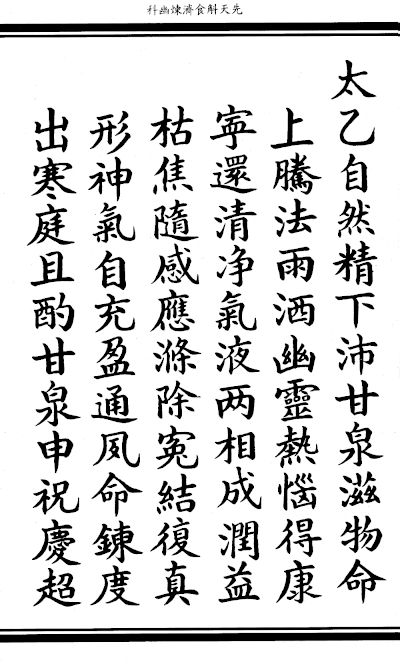 先天斛食濟煉幽科
太乙自然精下沛甘泉滋物命
上騰法雨洒幽靈熱惱得康
寧還清净氣液两相成潤益
枯焦隨感應滌除冤結復真
形神氣自充盈通夙命鍊度
出寒庭且酌甘泉申祝慶超